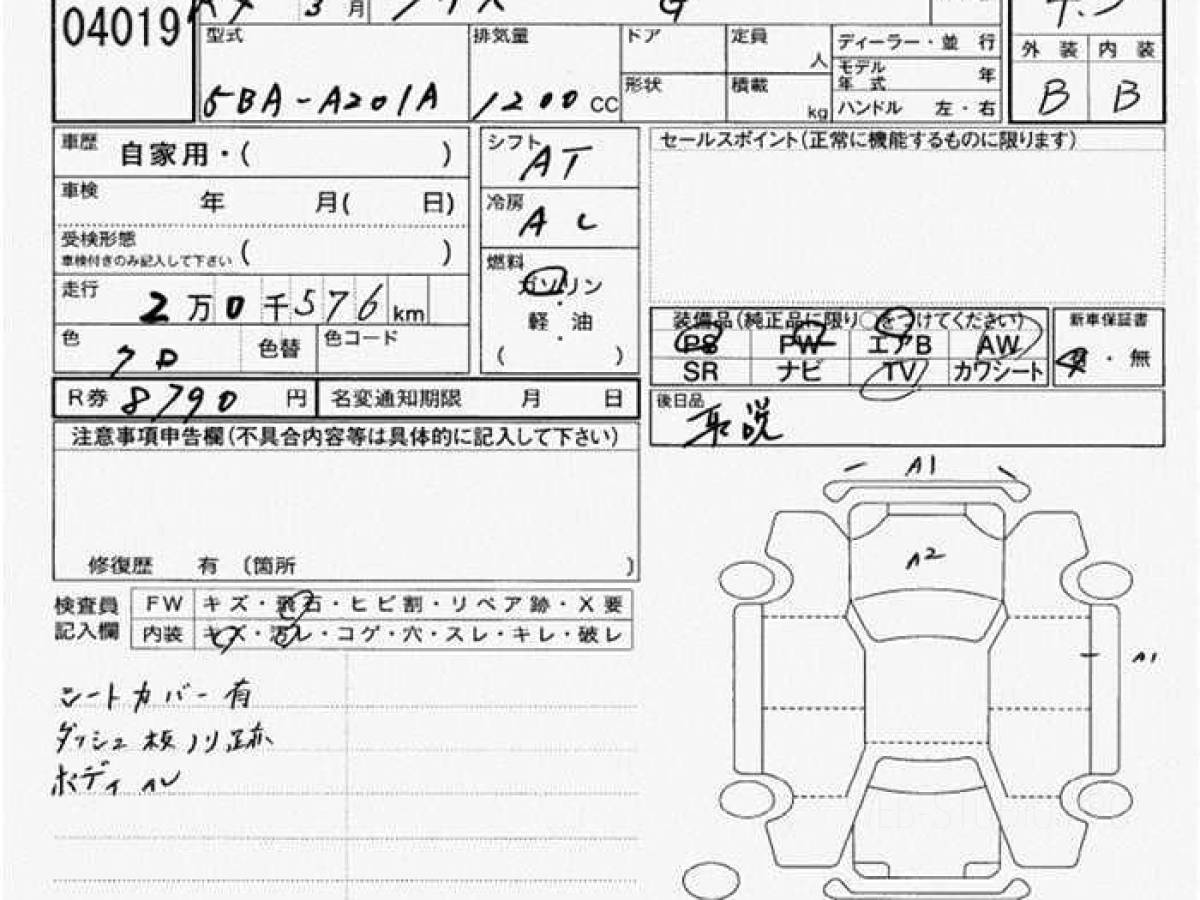 04019 3月 G
型式 排気量 ドア 定員 人 ディーラー・並行 外装 内装
5BA-A201A 1200 CC 形状 積載 kg モデル年式 年 B B
ハンドル 左・右
車歴 自家用・( ) シフト AT セールスポイント(正常に機能するものに限ります)
車検 年 月( 日) 冷房 AC
受検形態 ( )
車検付きのみ記入して下さい
燃料 ガソリン
走行 2万0千576km 軽油 装備品(純正品に限り○をつけてください) 新車保証書
色 色替 色コード ( ) PS PW エアB AW 有・無
SR ナビ TV カワシート
R券 8790 円 名変通知期限 月 日 後日品 取説
注意事項申告欄(不具合内容等は具体的に記入して下さい)
A1
A2
修復歴 有 〔箇所 〕
検査員記入欄 FW キズ・飛石・ヒビ割・リペア跡・X要
内装 キズ・汚レ・コゲ・穴・スレ・キレ・破レ
A1
シートカバー有
ダッシュ板ノリ跡
ボディ AU